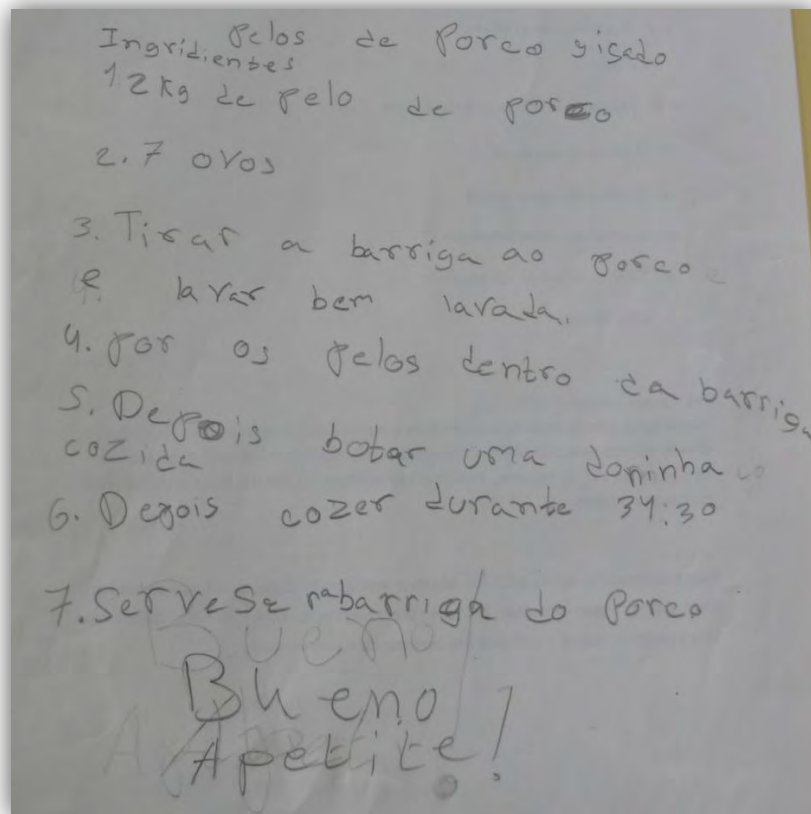 Pelos de Porco gisado
Ingridientes
12Kg de pelo de porco
2. 7 ovos
3. Tirar a barriga ao porco
e lavar bem lavada.
4. Por os pelos dentro da barriga
5. Depois botar uma doninha
cozida
6. Depois cozer durante 34:30
7. Serve Se na barriga do Porco
Bueno
Bueno
Apetite!